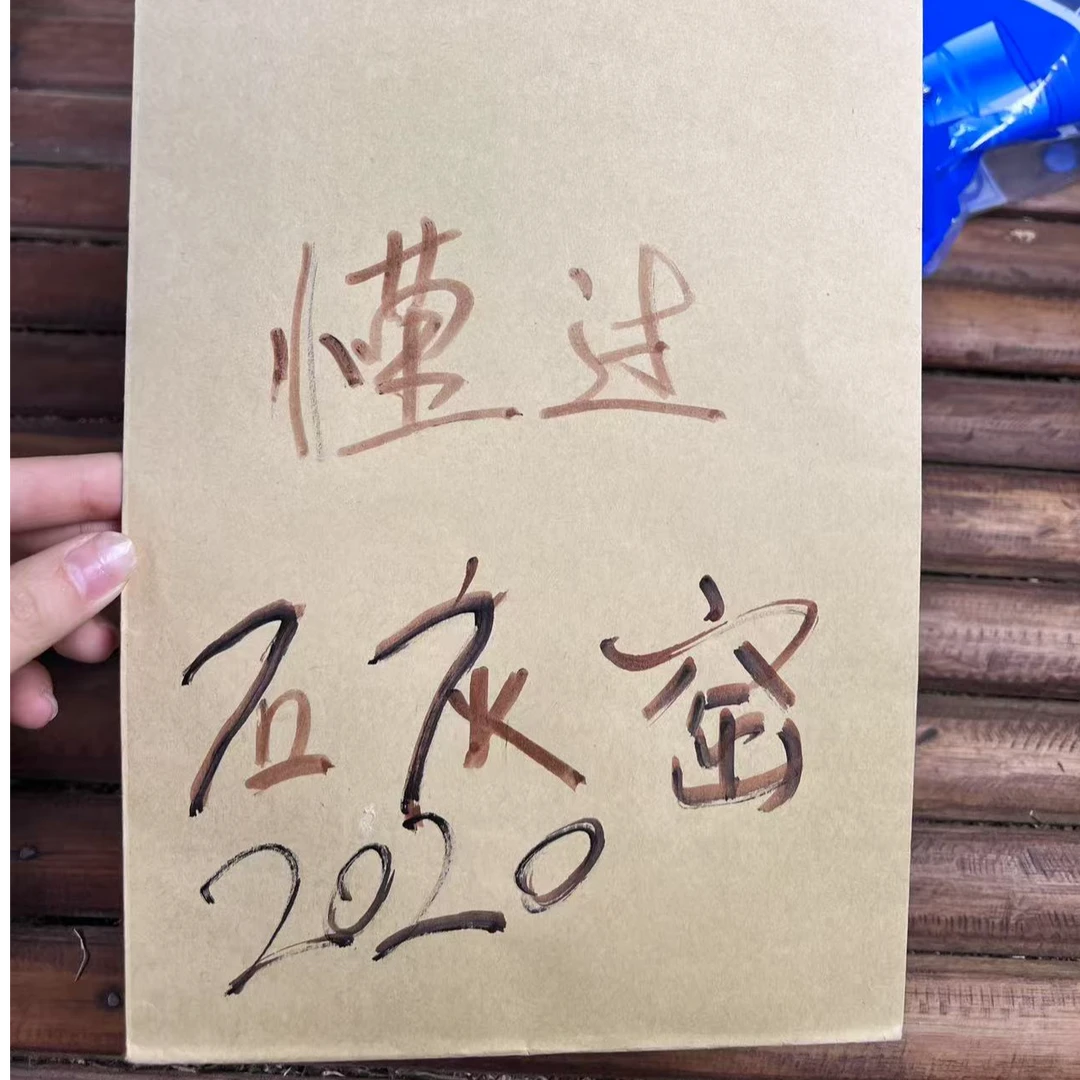 懂过
石灰窑
2020